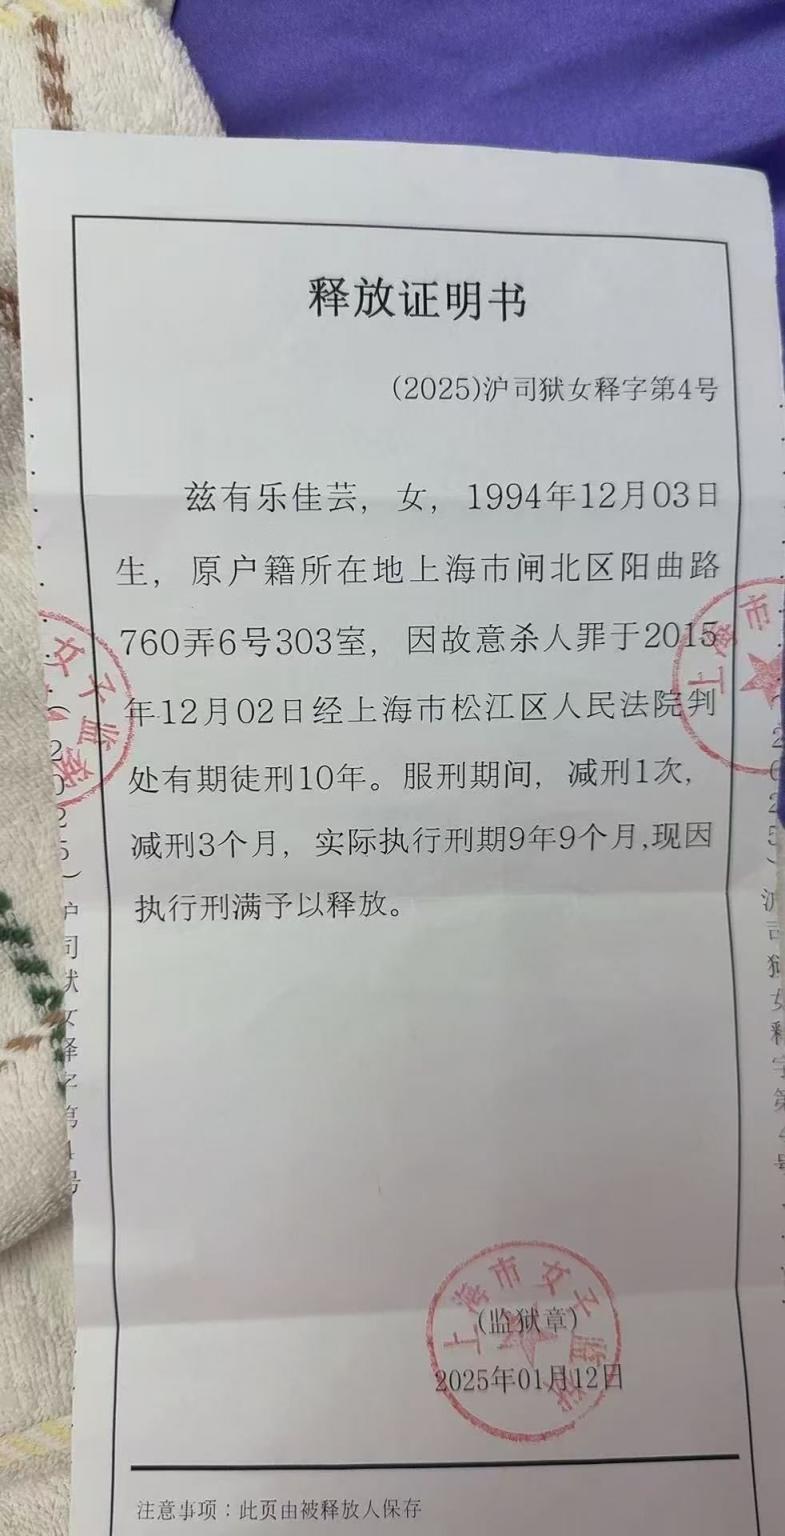 释放证明书
(2025)沪司狱女释字第4号
兹有乐佳芸，女，1994年12月03日
生，原户籍所在地上海市闸北区阳曲路
760弄6号303室，因故意杀人罪于2015
年12月02日经上海市松江区人民法院判
处有期徒刑10年。服刑期间，减刑1次，
减刑3个月，实际执行刑期9年9个月,现因
执行刑满予以释放。
上海市女子监狱
(监狱章)
2025年01月12日
注意事项：此页由被释放人保存
女子监狱
上海市